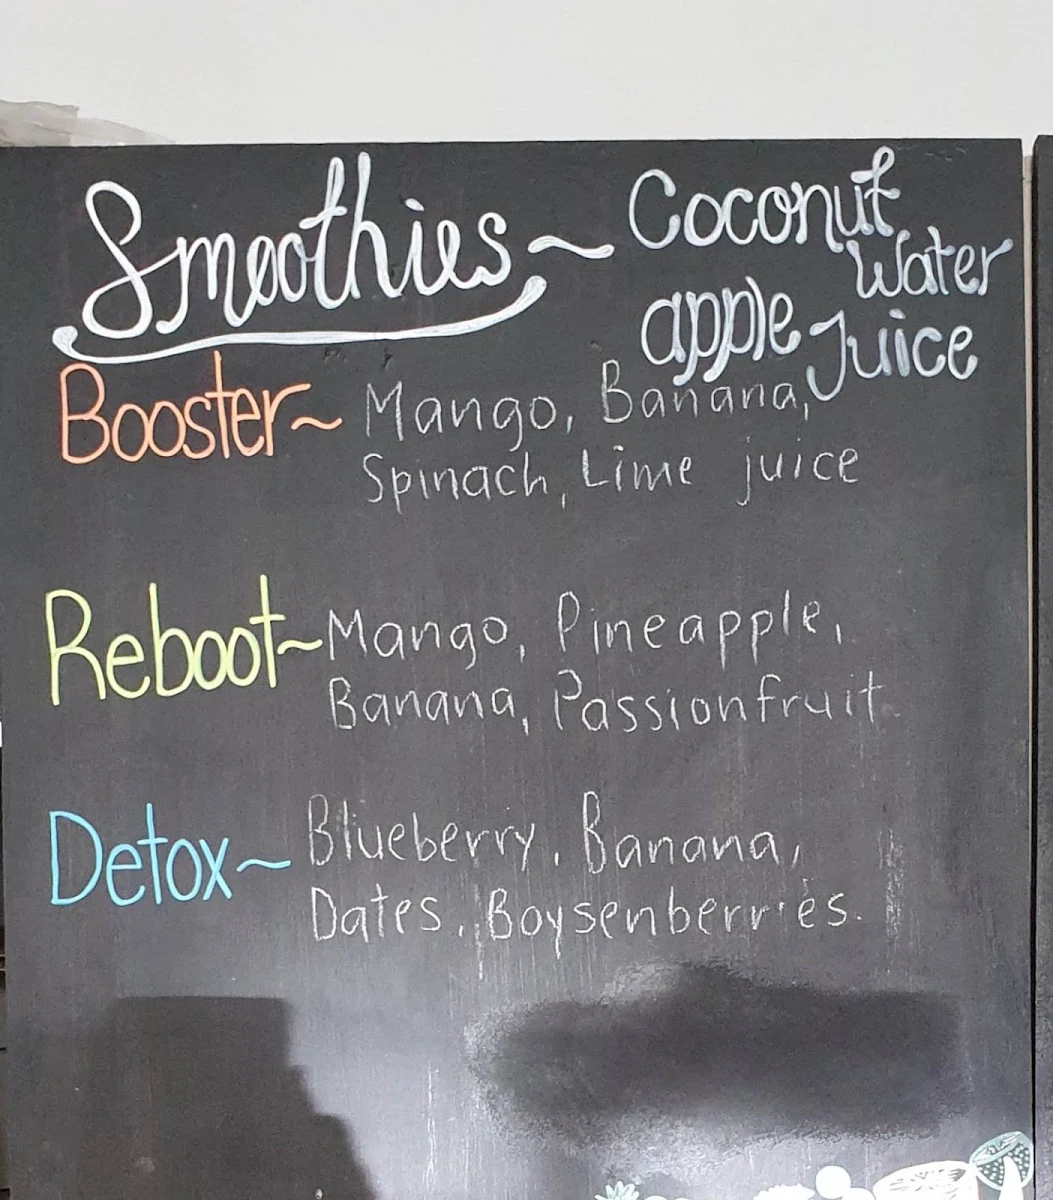 Smoothies ~ Coconut
Water
apple Juice
Booster ~ Mango, Banana,
Spinach, Lime juice
Reboot ~ Mango, Pineapple,
Banana, Passionfruit
Detox ~ Blueberry, Banana,
Dates, Boysenberries.